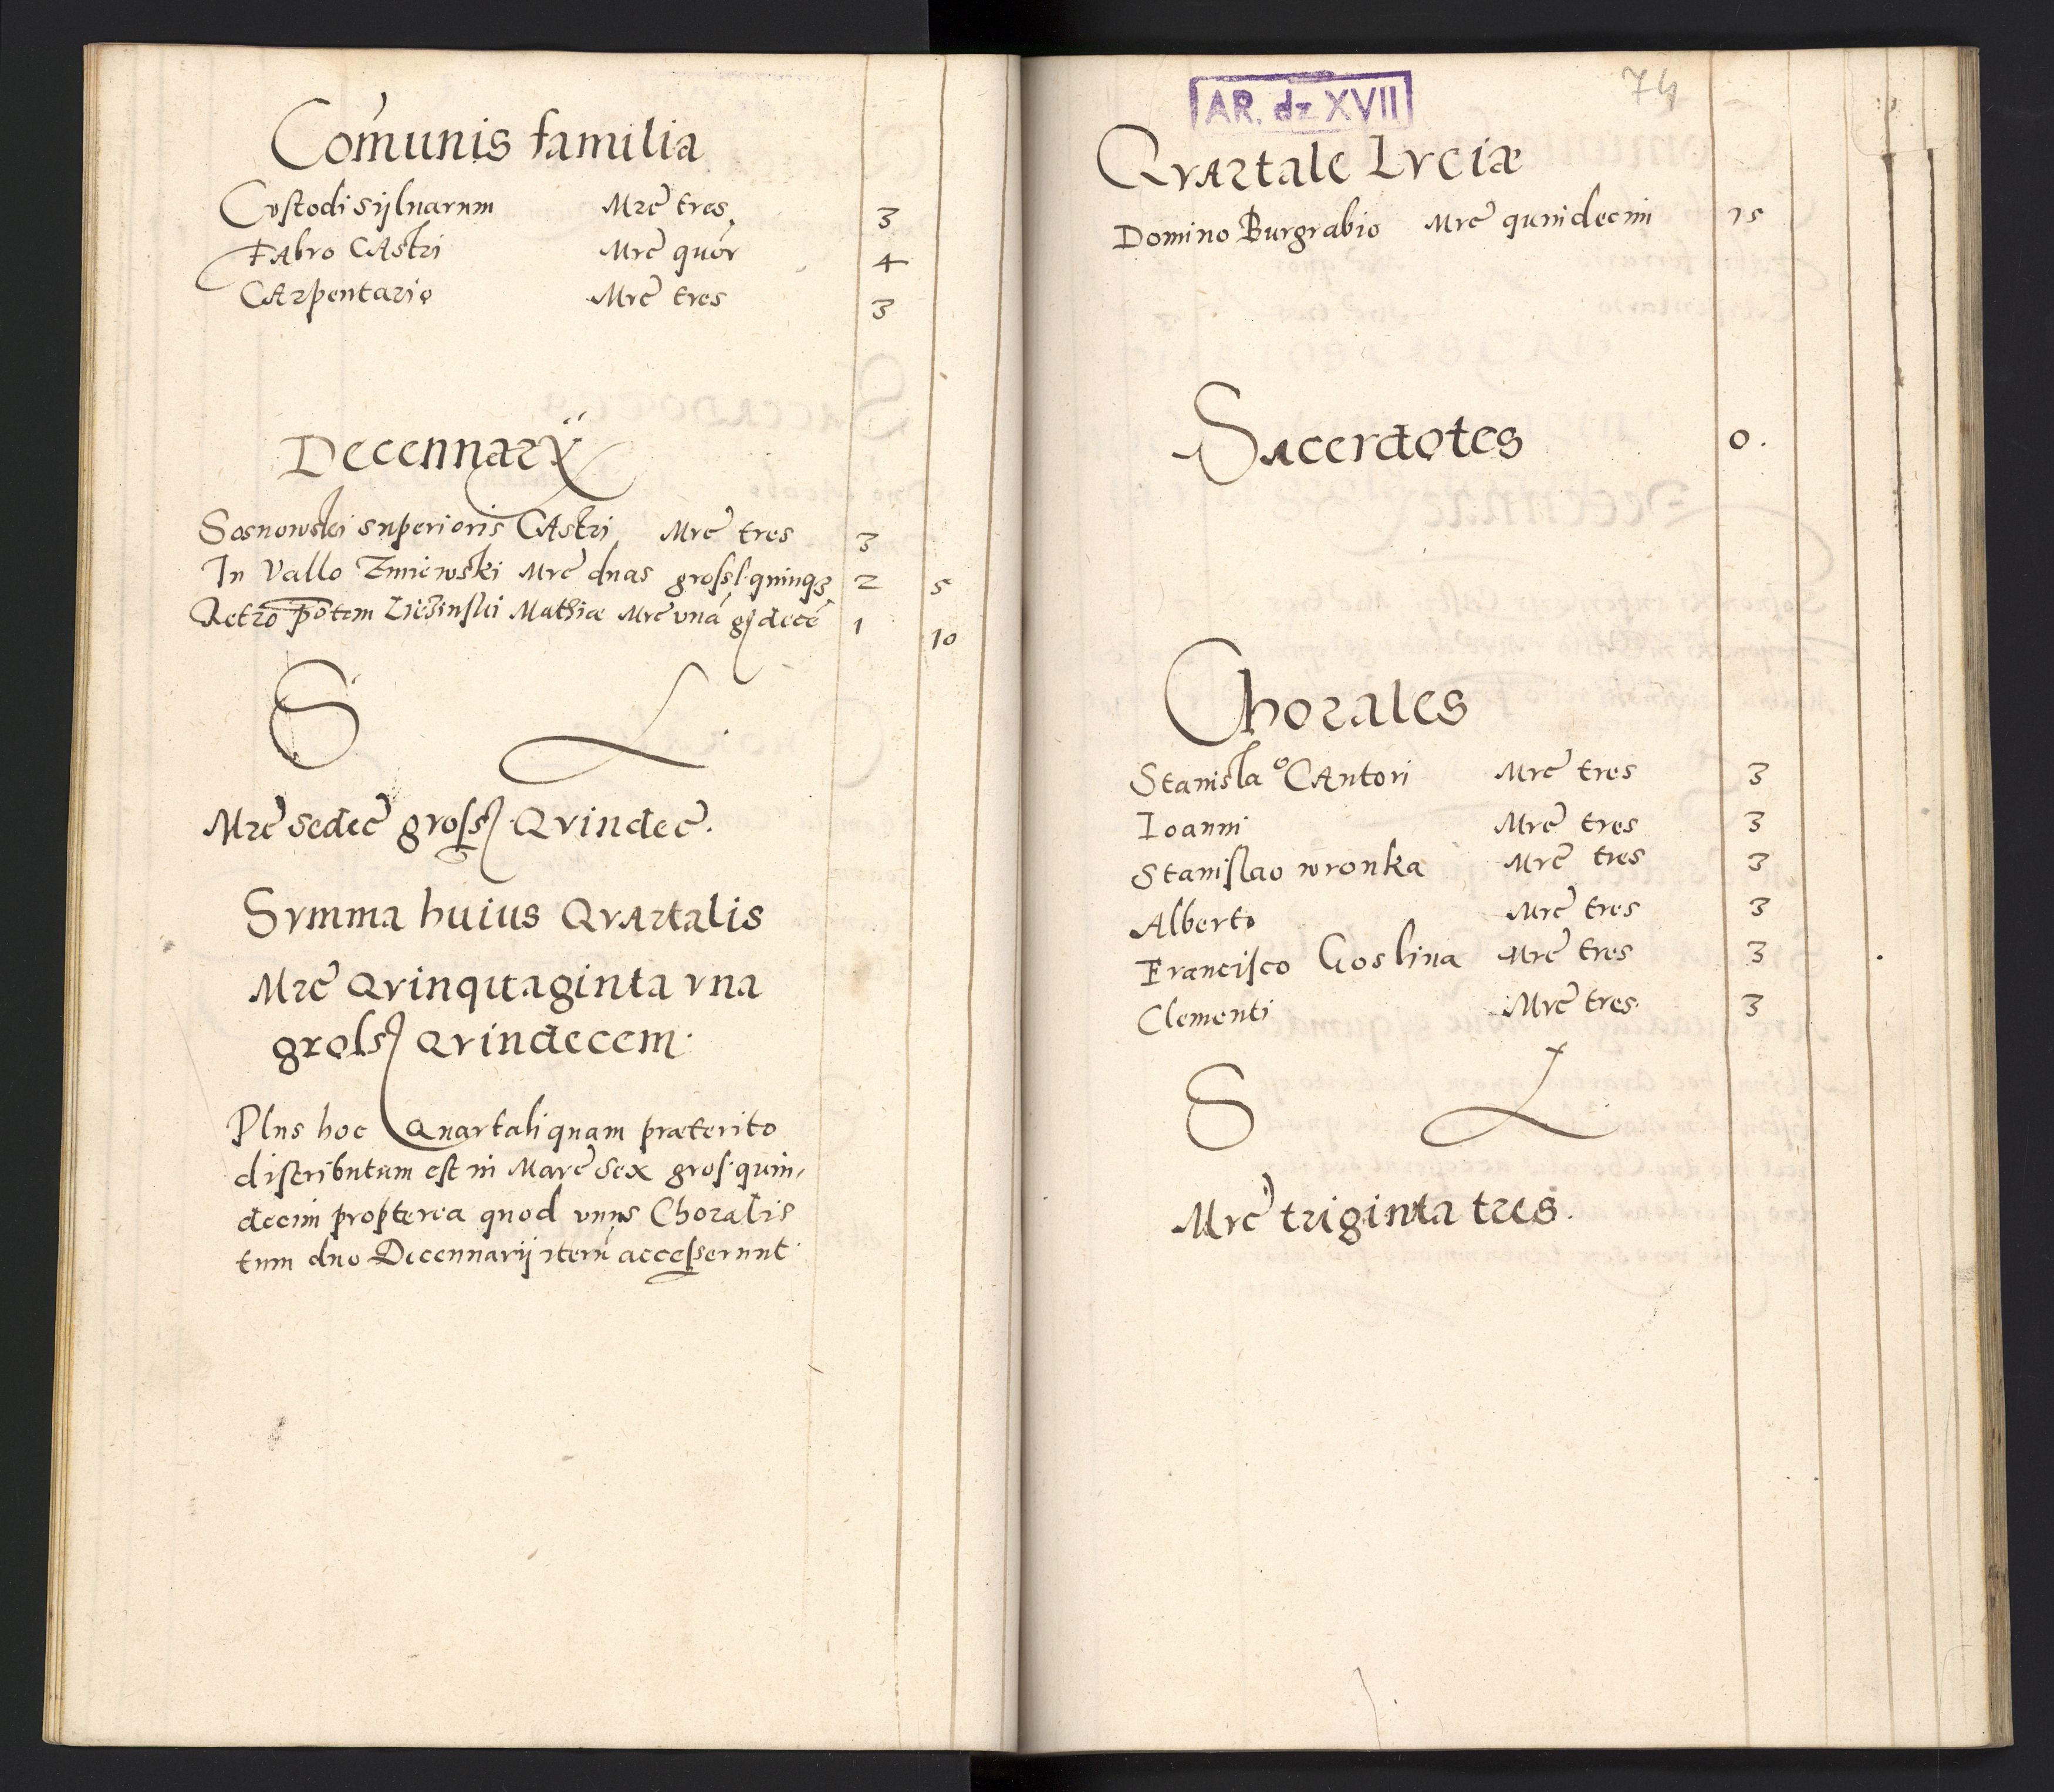 Com̄unis familia
Cvstodi sylvarum Mrc̄ tres 3
Fabro Castri Mrc̄ quōr 4
Carpentario Mrc̄ tres 3
Decennarij
Sosnowski superioris Castri Mrc̄ tres 3
In Vallo Zmiewski Mrc̄ duas gross. quinq3 2 5
Retro pōtem Mathiæ Mrc̄ vnā gr decē 1 10
S L
Mrc̄ sedec̄ gross Qvindec̄.
Svmma huius Qvartalis
Mrc̄ Qvinquaginta vna
gross Qvindecem.
Plus hoc Quartali quam præterito
distributum est in Marc̄ sex gros. quin,
decim propterea quod vnus Choralis
tum duo Decennarij iterū accesserunt.
AR. dz XVII
74
Qvartale Lvciæ
Domino Burgrabio Mrc̄ quindecim 15
Sacerdotes 0.
Chorales
Stanislaº Cantori Mrc̄ tres 3
Ioanni Mrc̄ tres 3
Stanislao wronka Mrc̄ tres 3
Alberto Mrc̄ tres 3
Francisco Goslina Mrc̄ tres 3
Clementi Mrc̄ tres. 3
S L
Mrc̄ triginta tres.